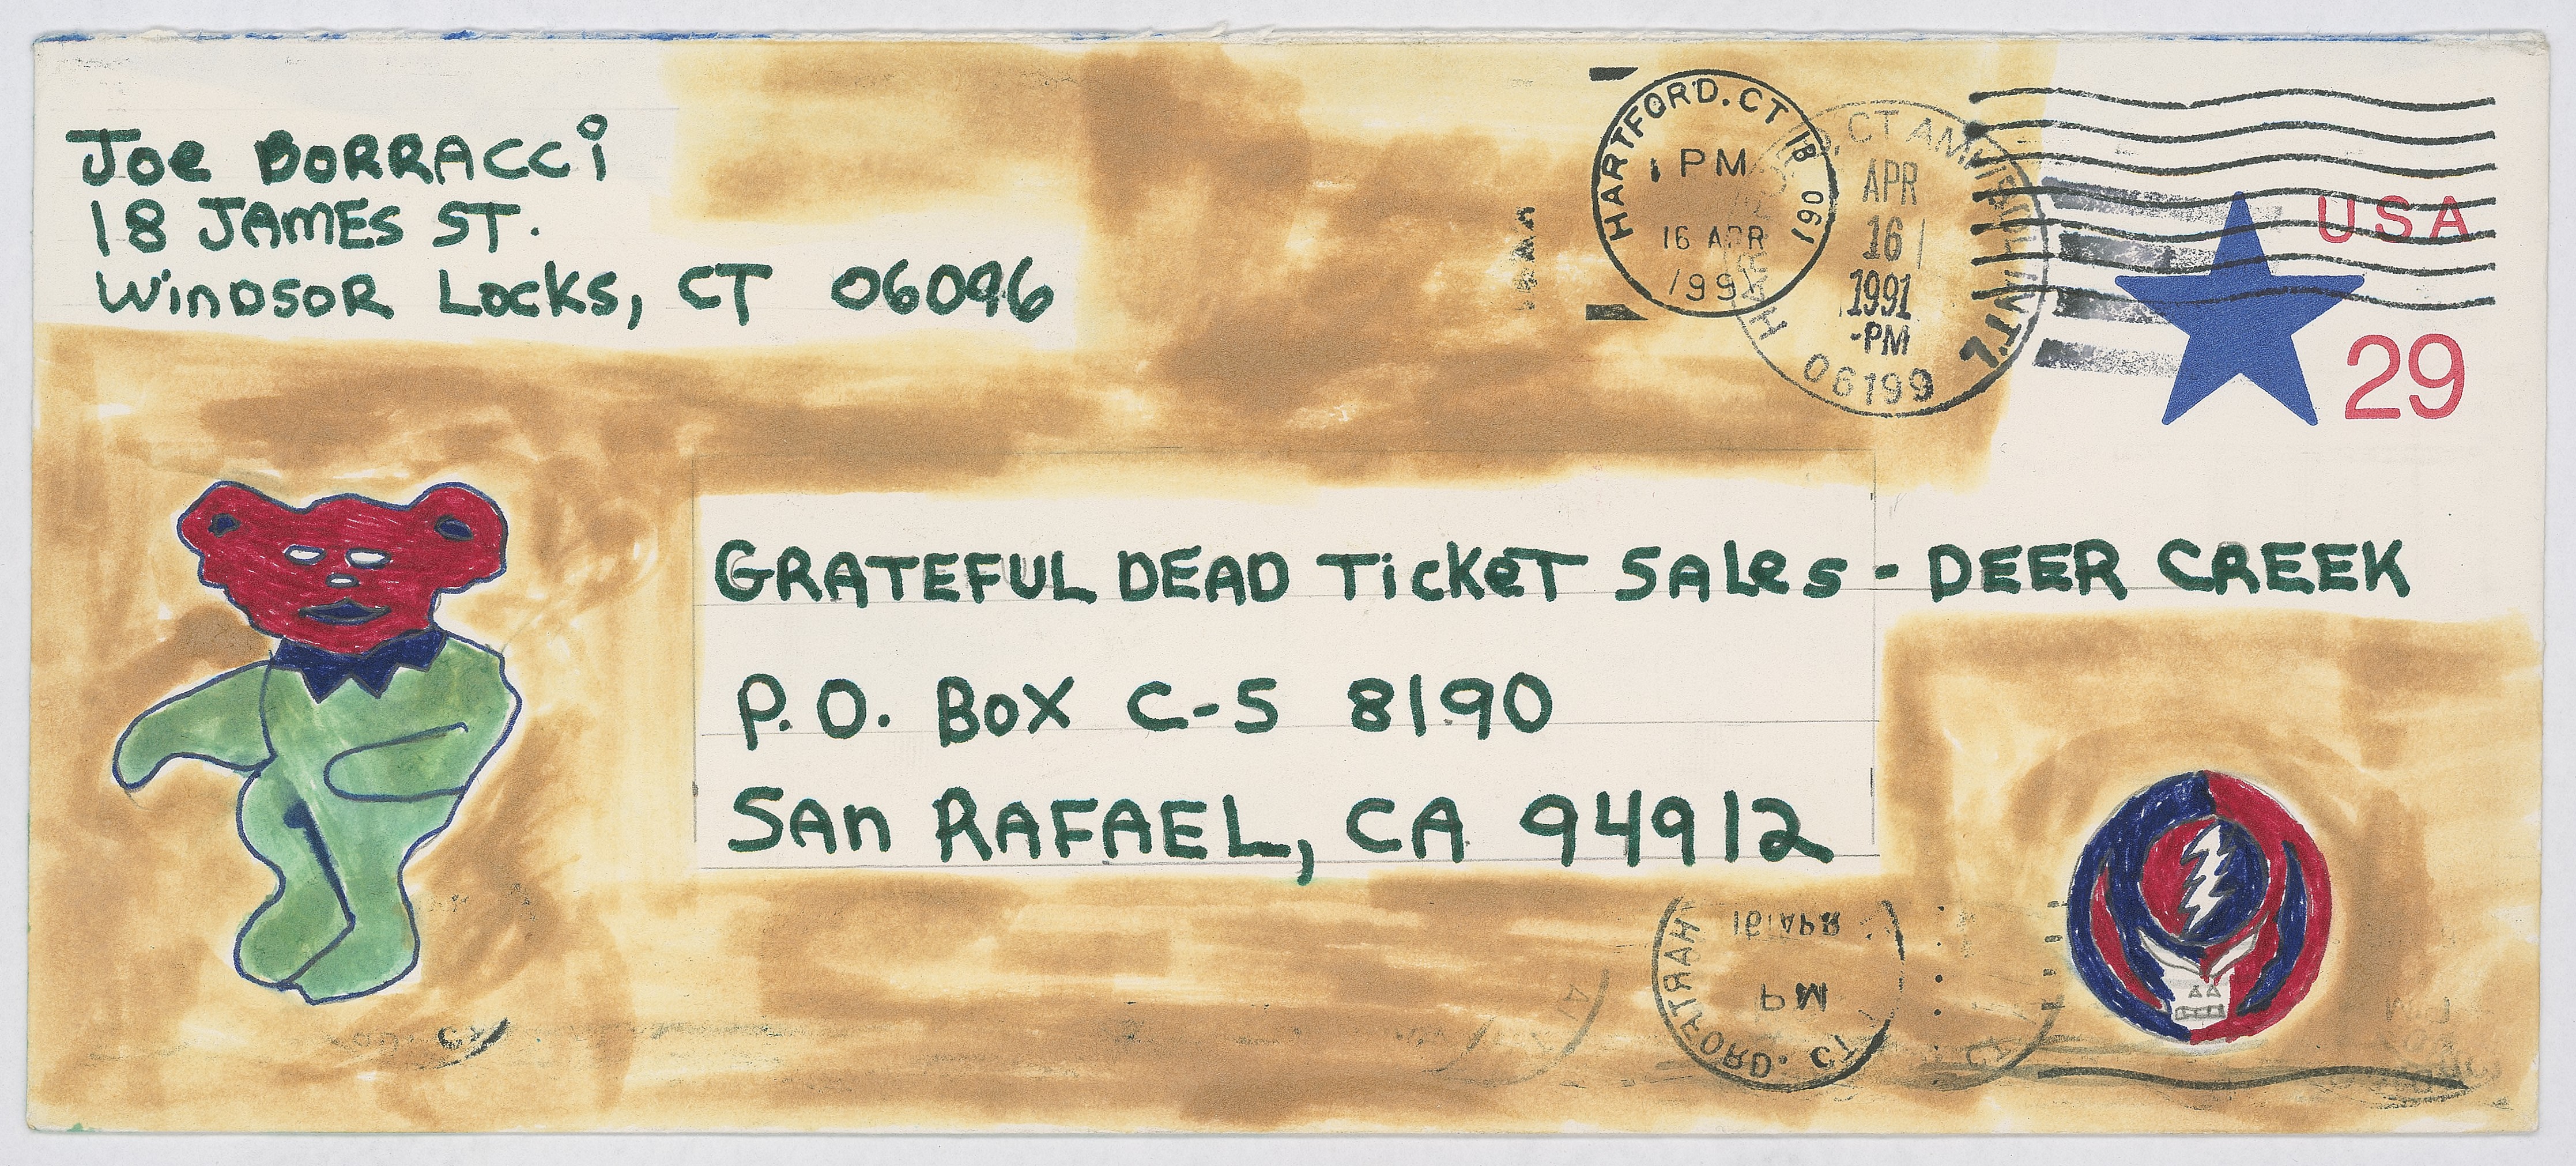 Joe BORRACCi
18 JAMES ST.
WinDSOR Locks, CT 06096
HARTFORD, CT 18
PM
16 APR
1991
061
CT AMF
INT'L
APR
16
1991
-PM
06199
USA
29
GRATEFUL DEAD TickeT SALes - DEER CREEK
P.O. Box C-S 8190
SAn RAFAEL, CA 94912
16 APR
PM
HARTFORD. CT